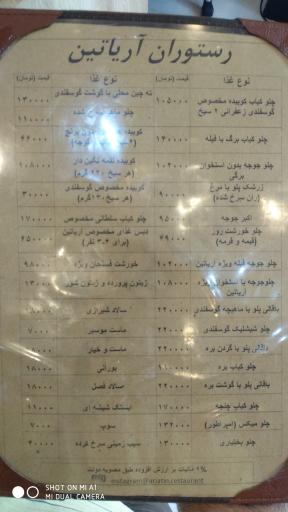 رستوران آریاتین
نوع غذا قیمت (تومان)
چلو کباب کوبیده مخصوص گوسفندی زعفرانی ۲ سیخ ۱۰۵۰۰۰
چلو کباب برگ با فیله ۱۴۰۰۰۰
چلو جوجه بدون استخوان ۱۰۲۰۰۰
زرشک پلو با مرغ
(ران سرخ شده)
اکبر جوجه ۹۵۰۰۰
چلو خورشت روز
(قیمه و قرمه) ۴۹۰۰۰
چلو جوجه فیله ویژه آریاتین
چلوجوجه با استخوان ویژه
آریاتین
باقالی پلو با ماهیچه گوسفندی ۲۲۰۰۰۰
چلو شیشلیک گوسفندی ۲۲۰۰۰۰
باقالی پلو با گردن بره
چلو کباب بره
باقالی پلو با گوشت بره ۲۲۰۰۰۰
چلو کباب چنجه ۱۷۰۰۰۰
چلو میکس (امپراطور) ۱۳۲۰۰۰
چلو بختیاری ۱۳۰۰۰۰
نوع غذا قیمت (تومان)
ته چین محلی با گوشت گوسفندی ۱۳۰۰۰۰
چلو شده ۱۱۰۰۰۰
کوبیده برنج ۴۶۰۰۰
کوبیده لقمه نگین دار
۱۰۸۰۰۰
کوبیده مخصوص گوسفندی
(هر سیخ ۱۲۰گرم) ۳۰۰۰۰
چلو کباب سلطانی مخصوص ۱۷۰۰۰۰
دیس غذای مخصوص آریاتین
(برای ۳-۴ نفر) ۴۵۰۰۰۰
خورشت فسنجان ویژه ۹۸۰۰۰
زیتون پرورده و زیتون شور ۱۳۰۰۰
سالاد شیرازی ۸۰۰۰
ماست موسیر ۷۰۰۰
ماست و خیار ۸۰۰۰
بورانی ۱۸۰۰۰
سالاد فصل ۱۸۰۰۰
ایستک شیشه ای ۱۱۰۰۰
سوپ ۷۰۰۰
سیب زمینی سرخ کرده ۴۰۰۰۰
۹٪ مالیات بر ارزش افزوده طبق مصوبه دولت
instagram@ariatin.restaurant
SHOT ON MI A1
MI DUAL CAMERA